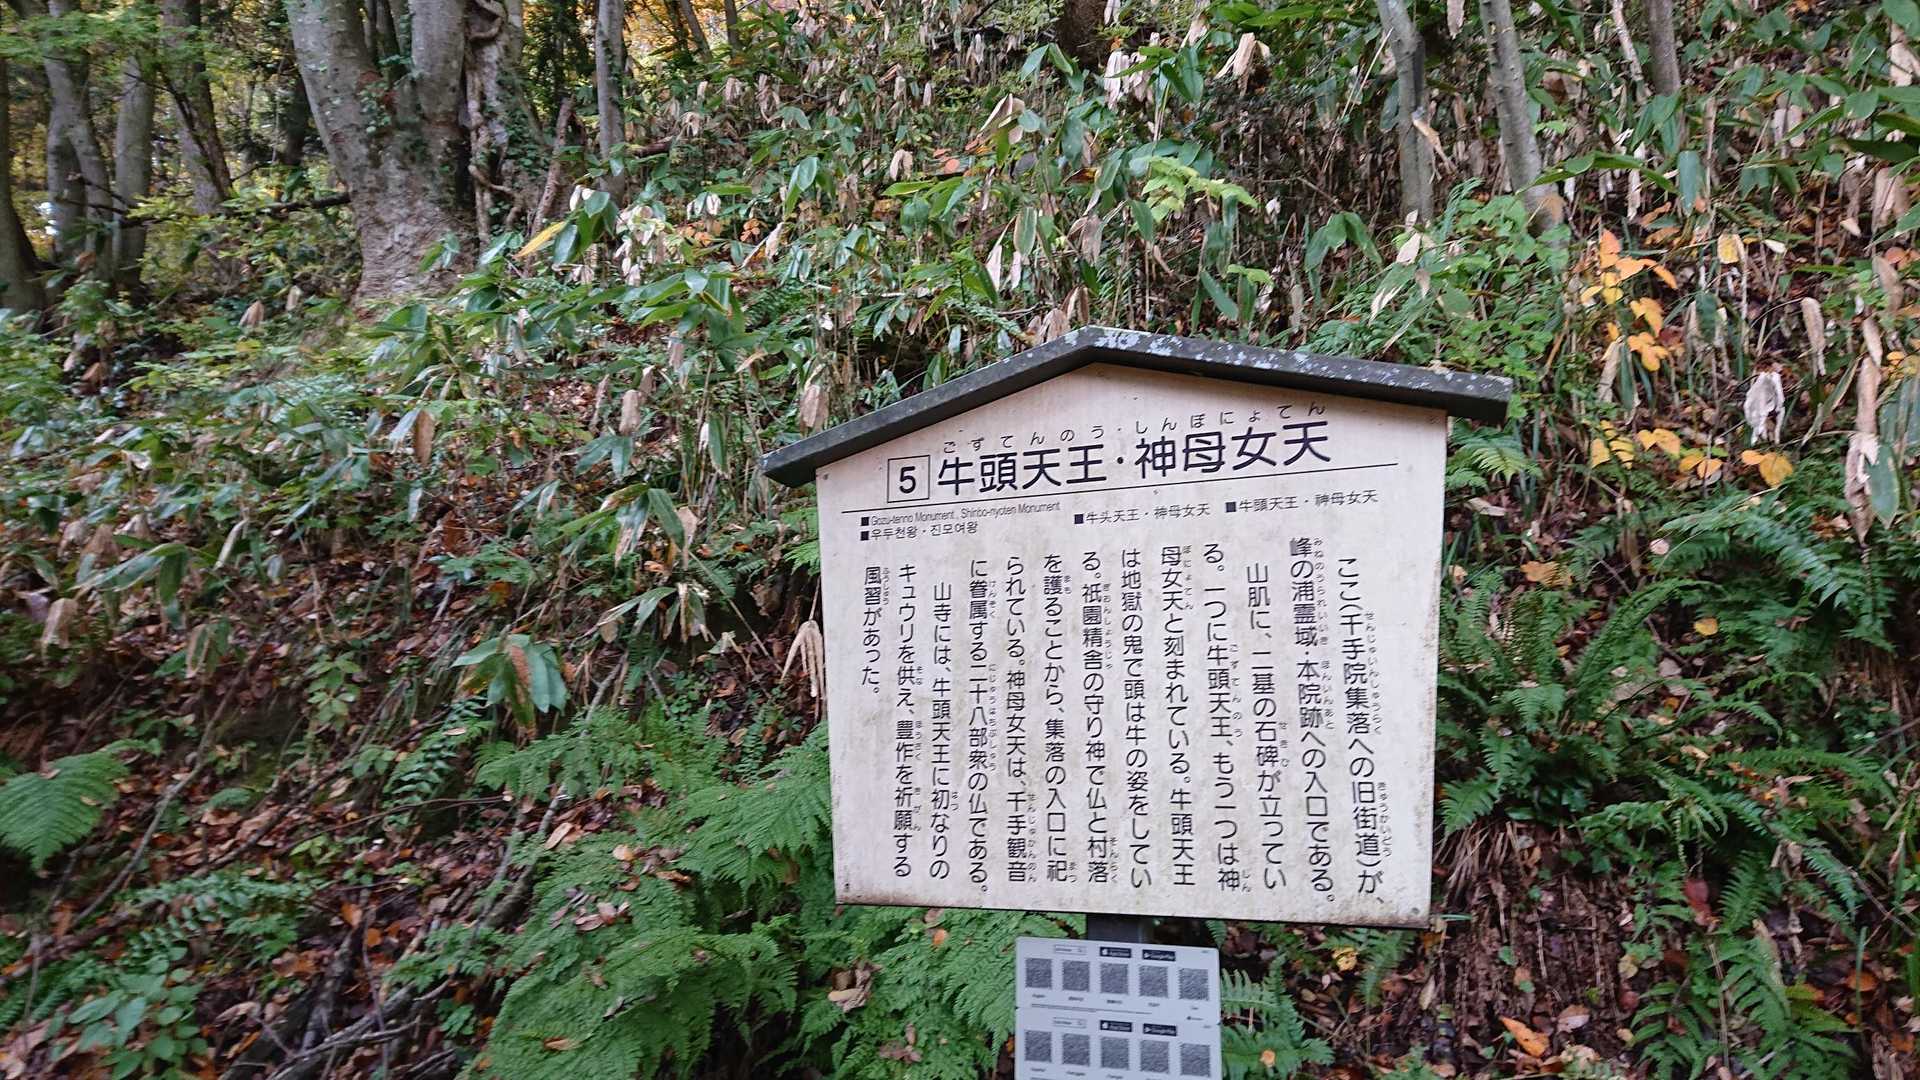 ごずてんのう・しんぼにょてん
5 牛頭天王・神母女天
■Gozu-tenno Monument , Shinbo-nyoten Monument
■우두천왕・진모여왕
■牛头天王・神母女天
■牛頭天王・神母女天
ここ（千手院集落への旧街道）が、
峰の浦霊域・本院跡への入口である。
山肌に、二基の石碑が立ってい
る。一つに牛頭天王、もう一つは神
母女天と刻まれている。牛頭天王
は地獄の鬼で頭は牛の姿をしてい
る。祇園精舎の守り神で仏と村落
を護ることから、集落の入口に祀
られている。神母女天は、千手観音
に眷属する二十八部衆の仏である。
山寺には、牛頭天王に初なりの
キュウリを供え、豊作を祈願する
風習があった。